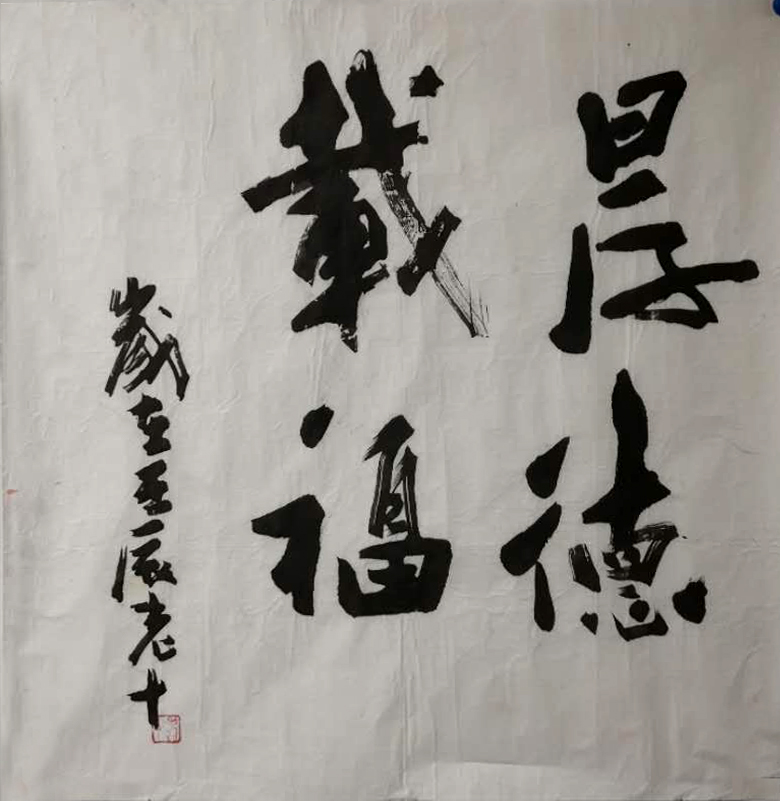 厚德
載福
歲在壬辰老十